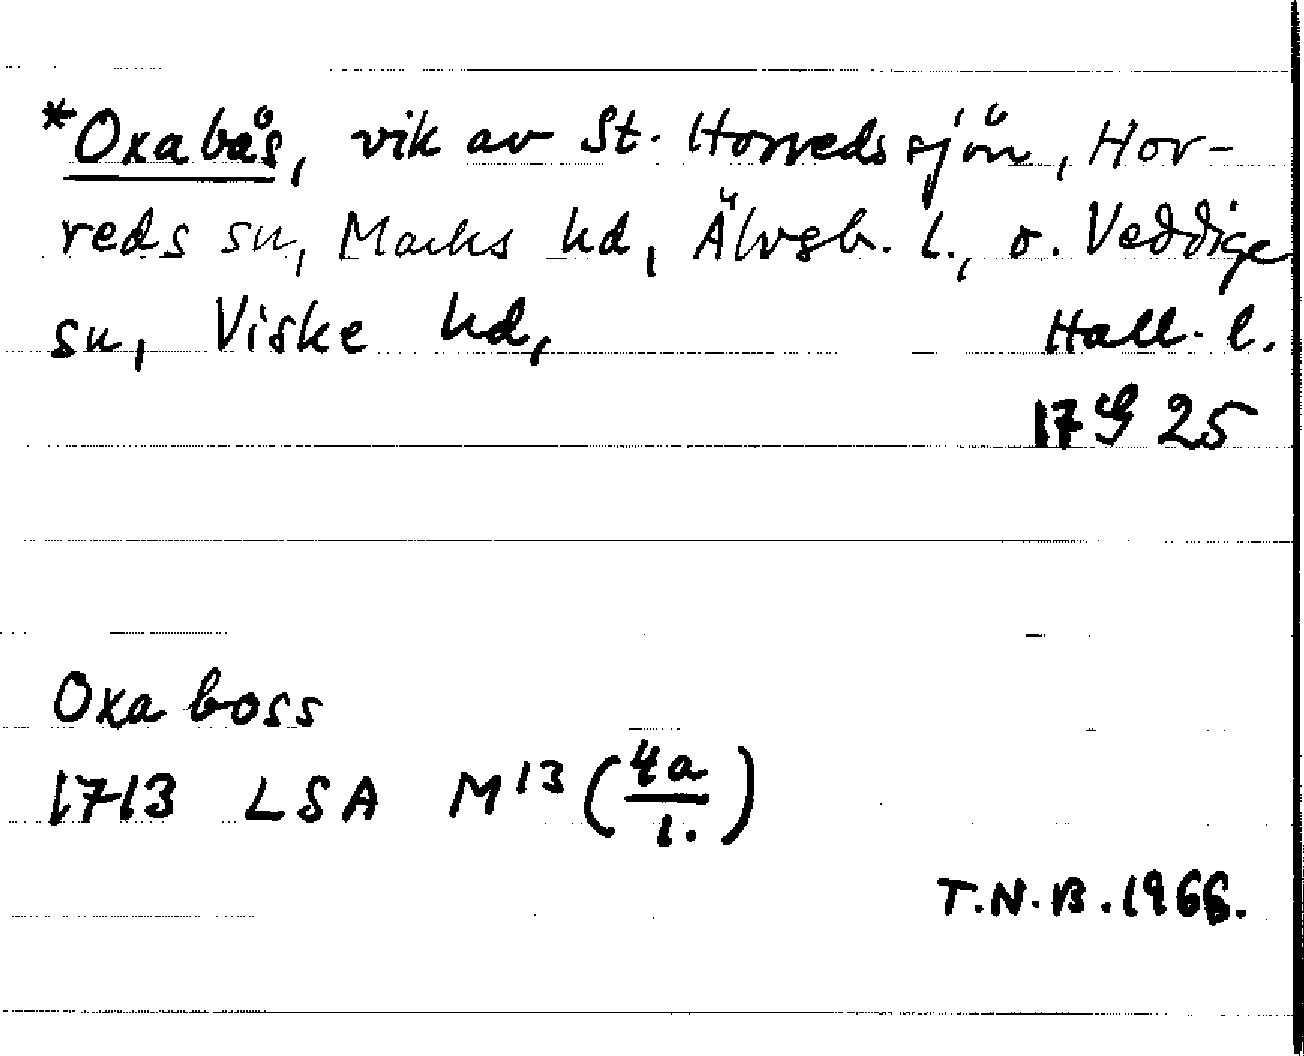 *Oxabås, vik av St. Horredssjön, Hor-
reds sn, Marks hd, Älvsb. l., o. Veddige
sn, Viske hd, Hall. l.
17 G 25
Oxa boss
1713 LSA M13 (4a/1.)
T.N.B. 1966.